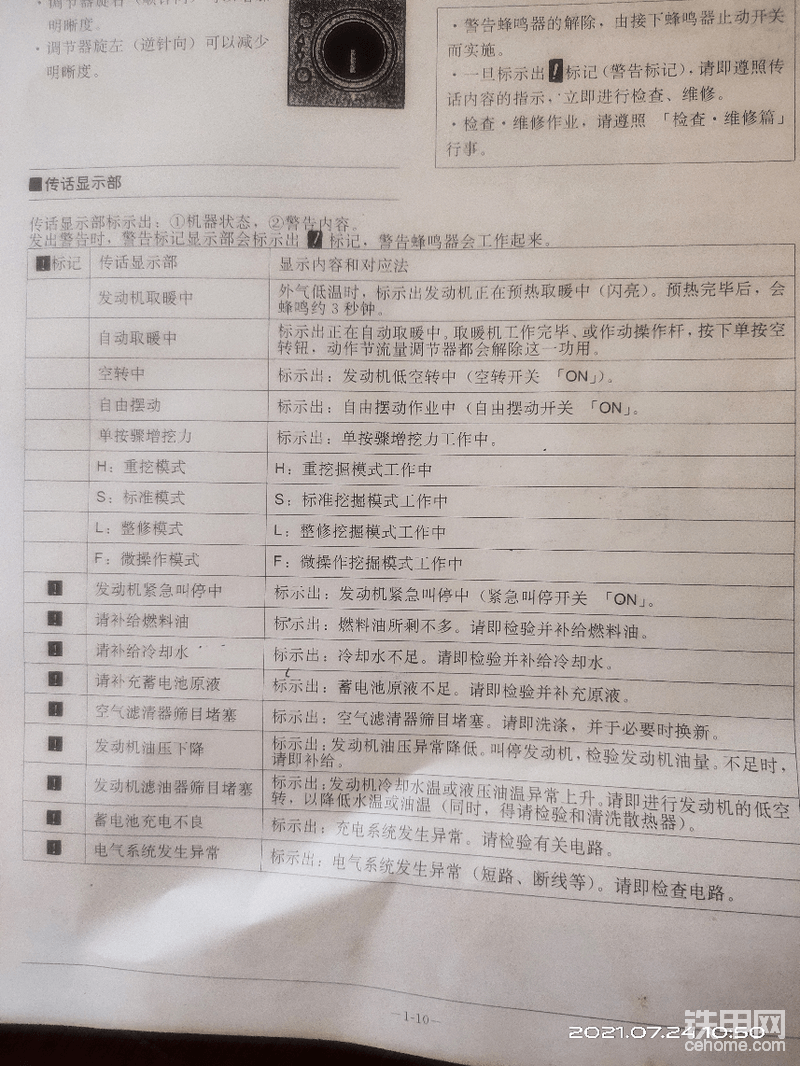 ·调节器旋右（顺针向）可以增加
明晰度。
·调节器旋左（逆针向）可以减少
明晰度。
·警告蜂鸣器的解除，由接下蜂鸣器止动开关
而实施。
·一旦标示出!标记（警告标记），请即遵照传
话内容的指示，立即进行检查、维修。
·检查·维修作业，请遵照 「检查·维修篇」
行事。
■传话显示部
传话显示部标示出：①机器状态，②警告内容。
发出警告时，警告标记显示部会标示出 ! 标记，警告蜂鸣器会工作起来。
!标记 传话显示部 显示内容和对应法
发动机取暖中 外气低温时，标示出发动机正在预热取暖中（闪亮）。预热完毕后，会
蜂鸣约3秒钟。
自动取暖中 标示出正在自动取暖中。取暖机工作完毕、或作动操作杆，按下单按空
转钮，动作节流量调节器都会解除这一功用。
空转中 标示出：发动机低空转中（空转开关 「ON」）。
自由摆动 标示出：自由摆动作业中（自由摆动开关 「ON」。
单按骤增挖力 标示出：单按骤增挖力工作中。
H：重挖模式 H：重挖掘模式工作中
S：标准模式 S：标准挖掘模式工作中
L：整修模式 L：整修挖掘模式工作中
F：微操作模式 F：微操作挖掘模式工作中
! 发动机紧急叫停中 标示出：发动机紧急叫停中（紧急叫停开关 「ON」。
! 请补给燃料油 标示出：燃料油所剩不多。请即检验并补给燃料油。
! 请补给冷却水 标示出：冷却水不足。请即检验并补给冷却水。
! 请补充蓄电池原液 标示出：蓄电池原液不足。请即检验并补充原液。
! 空气滤清器筛目堵塞 标示出：空气滤清器筛目堵塞。请即洗涤，并于必要时换新。
! 发动机油压下降 标示出：发动机油压异常降低。叫停发动机，检验发动机油量。不足时，
请即补给。
! 发动机滤油器筛目堵塞 标示出：发动机冷却水温或液压油温异常上升。请即进行发动机的低空
转，以降低水温或油温（同时，得请检验和清洗散热器）。
! 蓄电池充电不良 标示出：充电系统发生异常。请检验有关电路。
! 电气系统发生异常 标示出：电气系统发生异常（短路、断线等）。请即检查电路。
—1-10—
2021.07.24 10:50
铁甲网
cehome.com